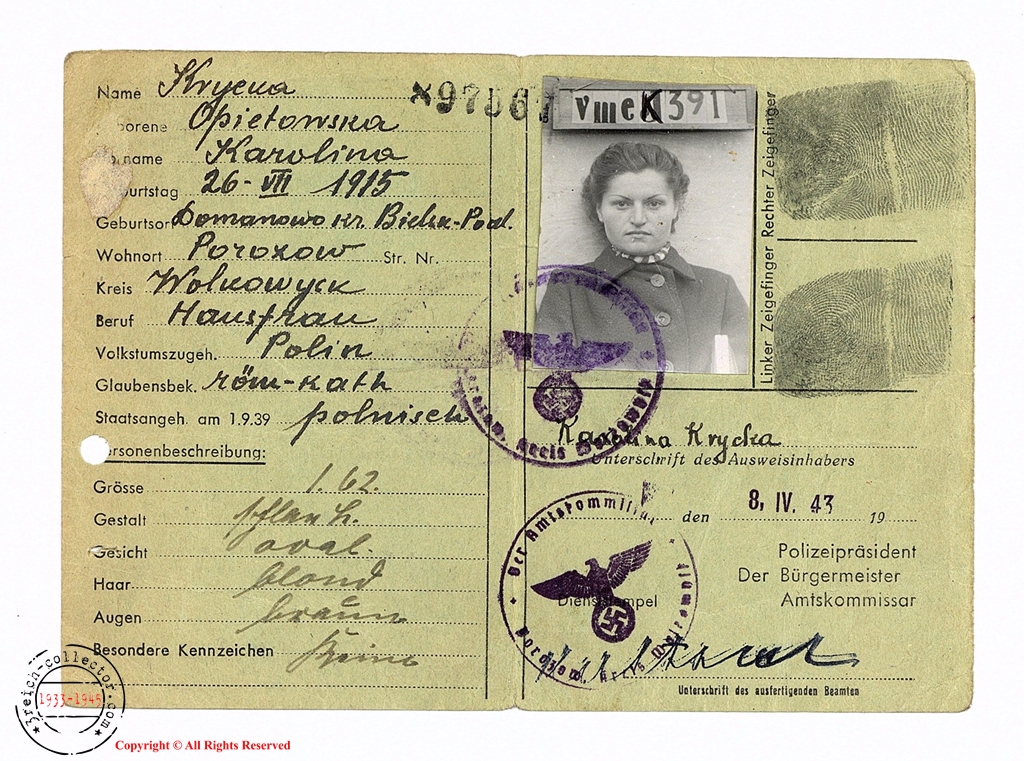 Name Krycka
borene Opietowska
name Karolina
urtstag 26-VIII 1915
Geburtsort Domanowo kr. Bielsk-Pod.
Wohnort Porozow Str. Nr.
Kreis Wolkowyck
Beruf Hausfrau
Volkstumszugeh. Polin
Glaubensbek. röm-kath
Staatsangeh. am 1.9.39 polnisch
ersonenbeschreibung:
Grösse 1.62.
Gestalt schlank.
Gesicht oval.
Haar blond
Augen braun
Besondere Kennzeichen keine
VmeK391
Rechter Zeigefinger
Linker Zeigefinger
Kreis
Karolina Krycka
Unterschrift des Ausweisinhabers
den 8. IV. 43 19
Polizeipräsident
Der Bürgermeister
Amtskommissar
Dienststempel
Der Amtskommissar
Porozow Kreis
Unterschrift des ausfertigenden Beamten
3reich-collector.com
1933-1945
Copyright © All Rights Reserved